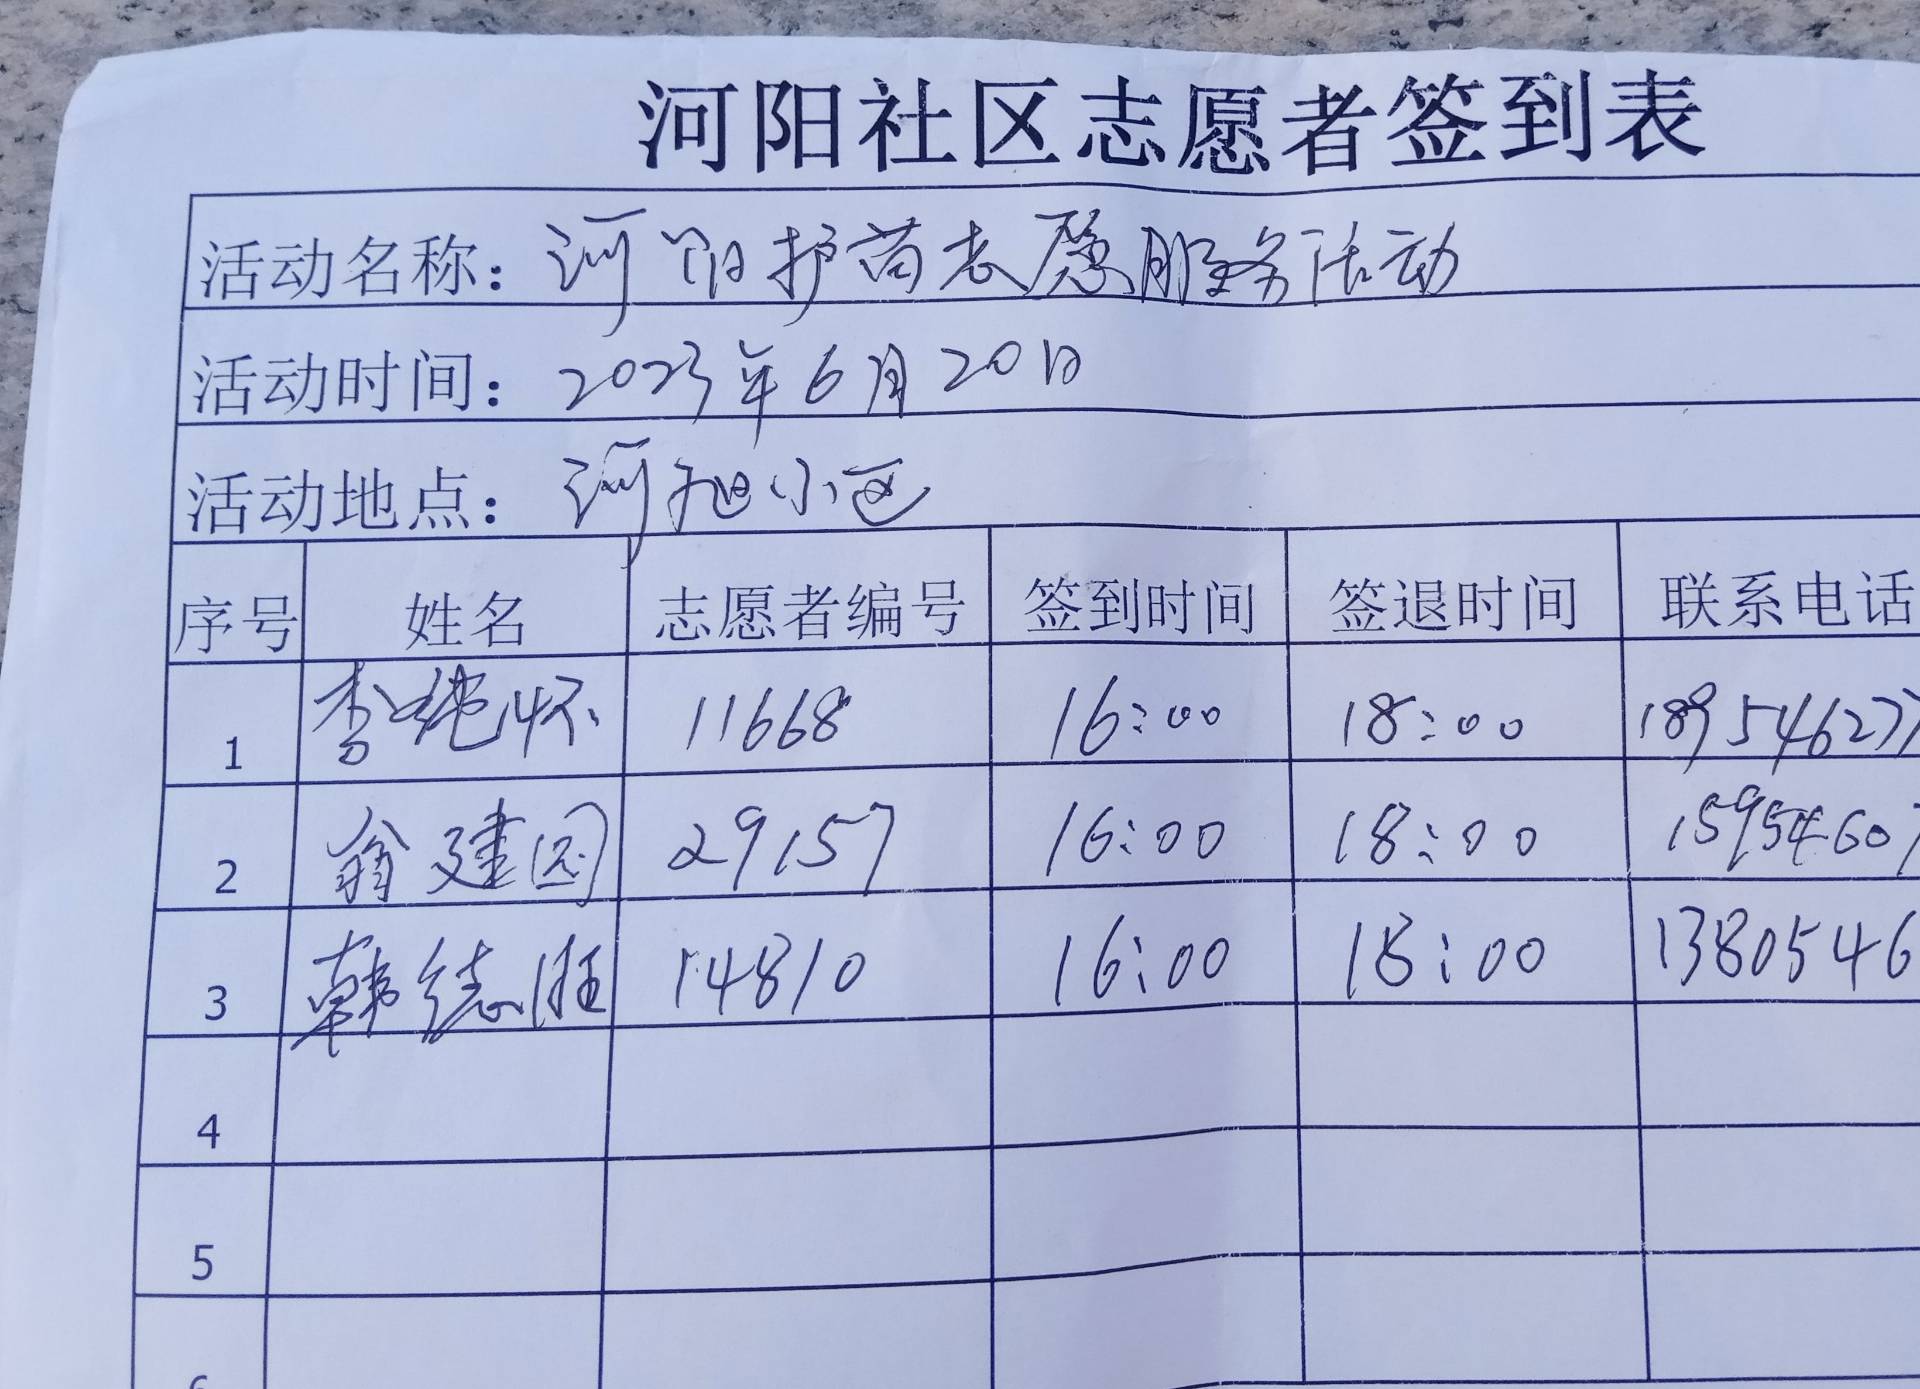 河阳社区志愿者签到表
活动名称：河阳护苗志愿服务活动
活动时间：2023年6月20日
活动地点：河旭小区
序号 姓名 志愿者编号 签到时间 签退时间 联系电话
1 李纯怀 11668 16:00 18:00 189546277
2 翁建园 29157 16:00 18:00 15954607
3 韩德旺 14810 16:00 18:00 13805446
4
5
6